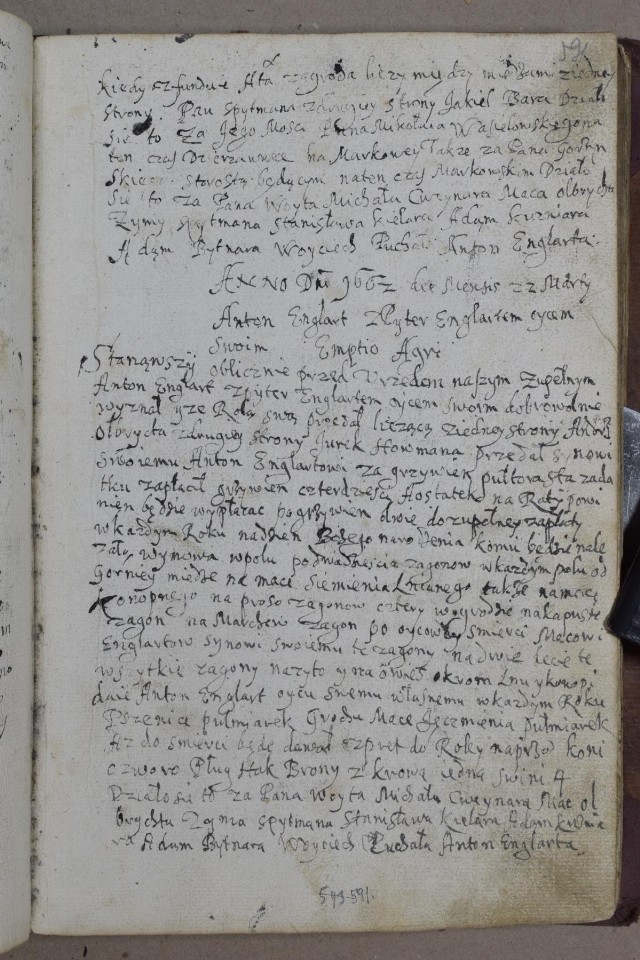 591
kiedy sz funduie Ata zagroda lezy między miedzami ziedney
strony Pau Spytmana zdrugiey strony Jakiel Bara Działo
sie to za Jego Mosci Pana Mikołaia Wasielowskiego na
ten czas Dzierzawce na Markowey Także za Pana Gorzyn
skiego starostę będącym naten czas Markowskim Działo
sie to za Pana Woyta Michała Cwynara Maca Olbrychta
Zymy Spytmana Stanisława Kielara Adam Kuzniara
Adam Bytnara Woyciech Puchała Anton Englarta
ANNO Dni 1662 die Mensis 22 Marty
Anton Englart zPyter Englartem oycem
swoim Emptio Agri
Stanąwszÿ oblicznie przed Urzedem naszym zupełnym
Anton Englart zpyter Englartem oycem swoim dobrowolnie
wyznał yze Rolą swą przedał liezącą ziedney strony Andrz
Olbrycta zdrugiey strony Jurek Howmana przedał synowi
swoiemu Anton Englartowi za grzywien pułtorasta zada
tku zapłacił grzywien czterdziesci Aostatek na Raty powi
nien będzie wypłacac po grzywien dwie do zupełney zapłaty
w kazdym Roku nadzien Bozego naro Dzenia komu będzie nale
zało wymowa wpolu po dwadziescia zagonow wkazdym polu od
Gorniey miedze na mace siemienia Lnianego także namacę
Konopnego na proso zagonow cztery wogrodzie nakapustę
zagon na Marchew zagon po oycowey smierci Macowi
Englartow synowi swoiemu te zagony na dwie lecie te
wszytkie zagony nazyto y na owies okrom Lnu ykonopi
daie Anton Englart oycu swemu własnemu wkazdym Roku
Pszenice pułmiarek Grochu Mace Jęczmienia pułmiarek
Az do smierci będe dawał Szpręt do Roley naprzod koni
czworo Pług Hak Brony z krową iedną swini 4
Działo sie to za Pana Woyta Michała Cwynara Mac Ol
brychta Zymia Spytmana Stanisława Kielara Adam Kuznia
ra Adam Bytnara Woyciech Puchała Anton Englarta
593-591.